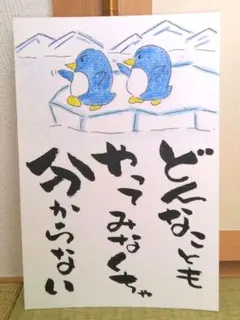 どんなことも
やってみなくちゃ
分からない